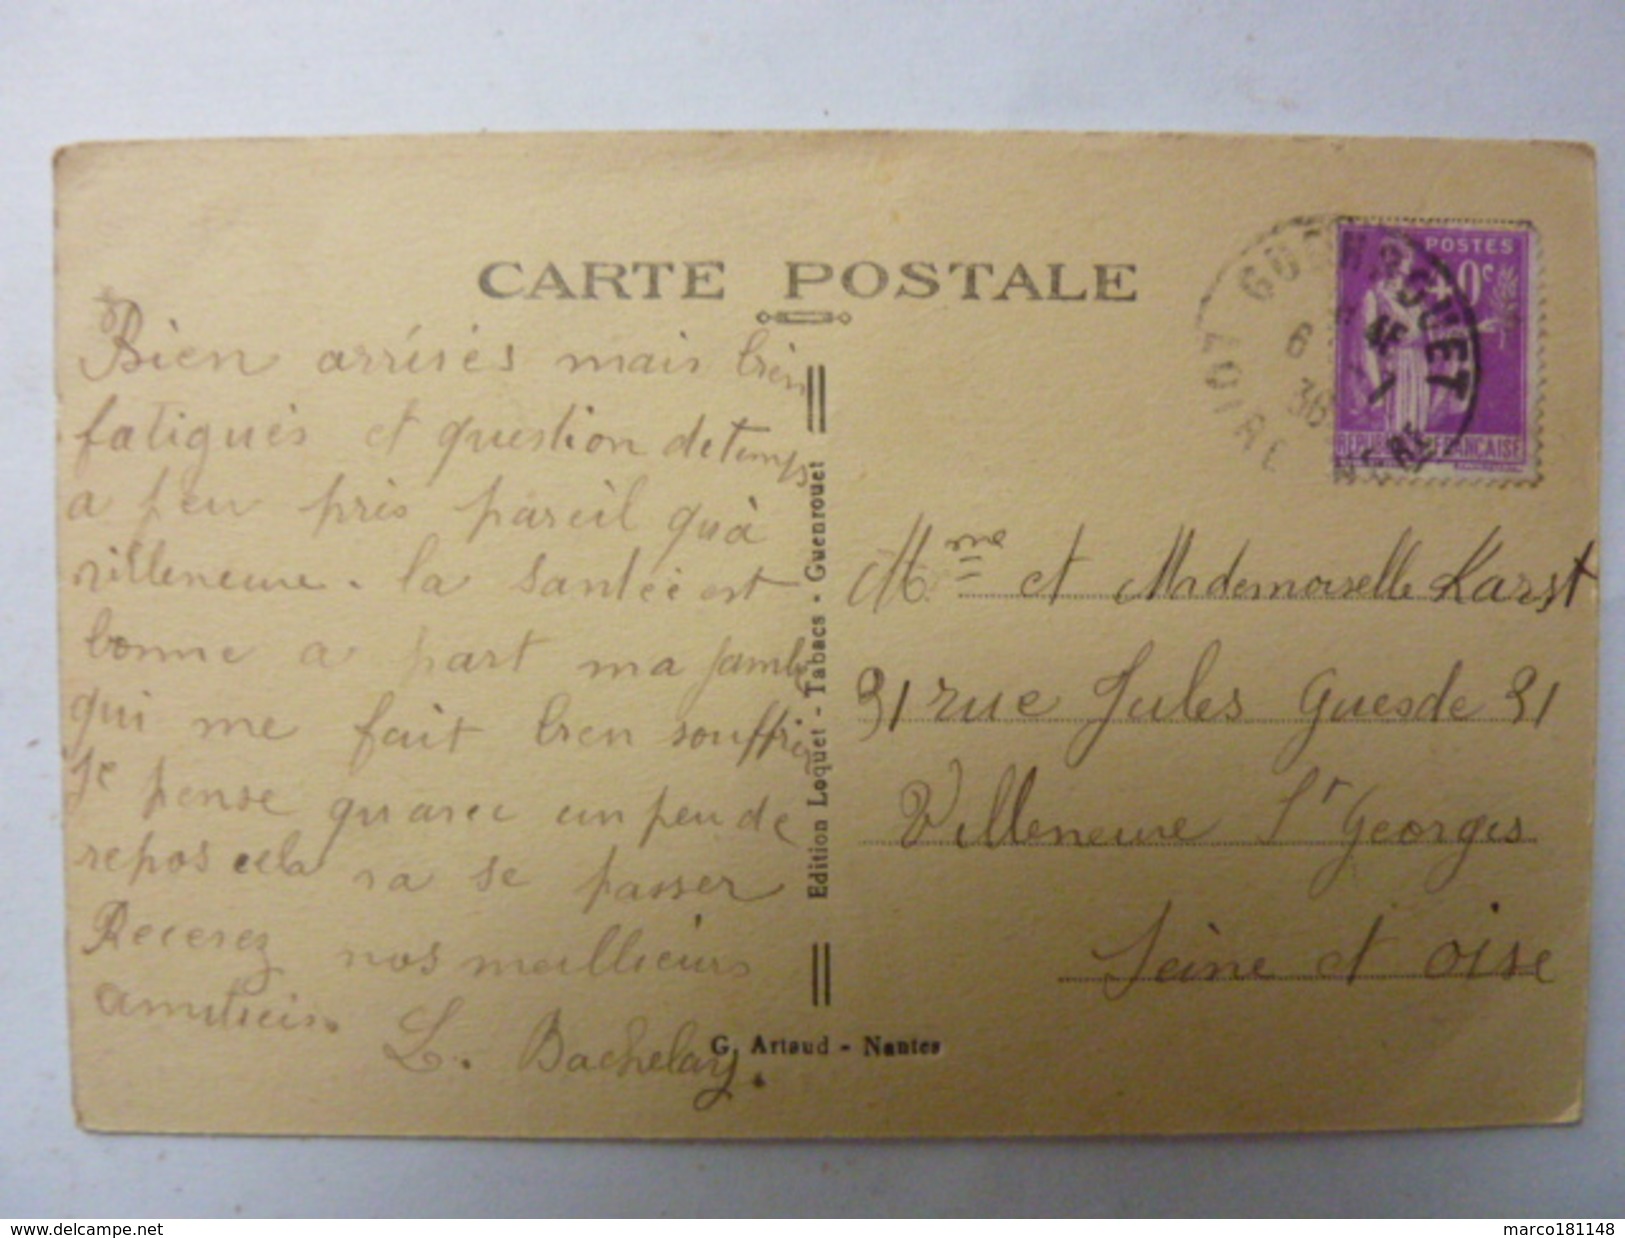 CARTE POSTALE
Bien arrivés mais bien
fatigués et question de temps
a peu près pareil qu'à
villeneuve. la santée est
bonne a part ma jambe
qui me fait bien souffrir
je pense qu'avec un peu de
repos cela va se passer
Recevez nos meillieurs
amitieis.
L. Bachelay.
Edition Loquet - Tabacs - Guenrouet
G. Artaud - Nantes
POSTES
0c
REPUBLIQUE FRANCAISE
GUENROUET
6
36
LOIRE INFRE
Mme et Mademoiselle Karst
31 rue Jules Guesde 31
Villeneuve St Georges
Seine et oise
www.delcampe.net
marco181148